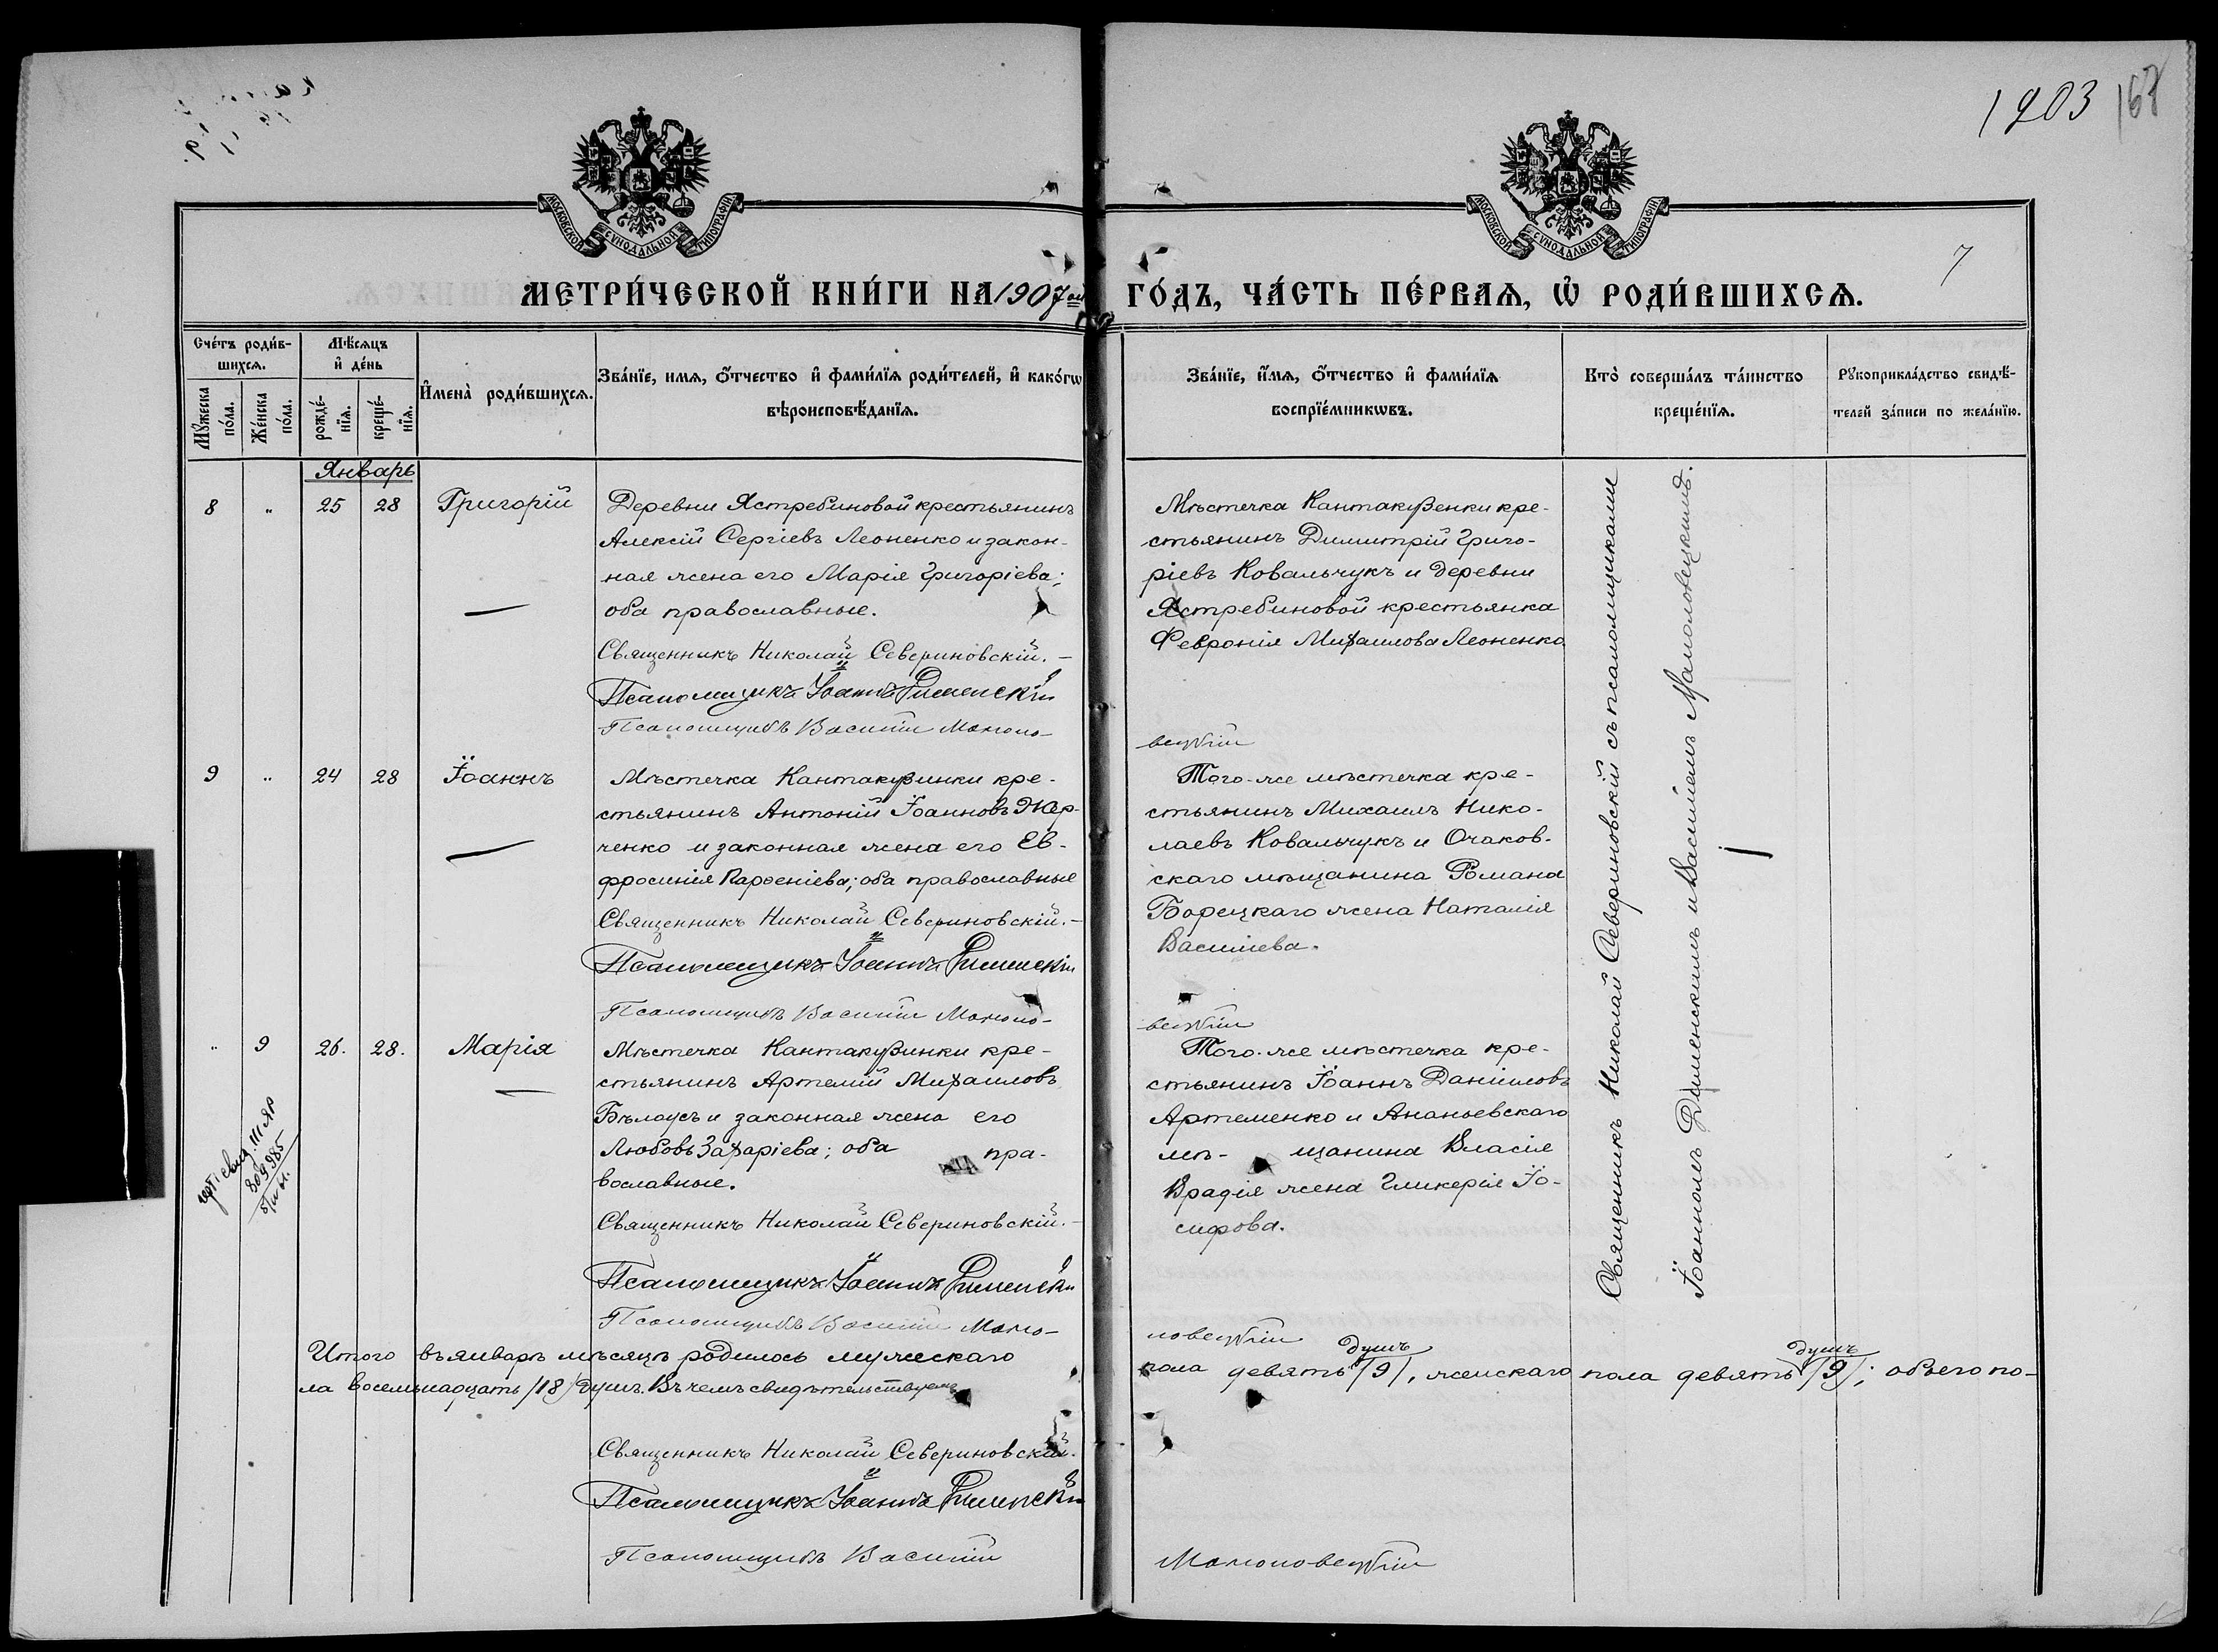 1903 167
МОСКОВСКОЙ СУНОДАЛЬНОЙ ТИПОГРАФІИ
МОСКОВСКОЙ СУНОДАЛЬНОЙ ТИПОГРАФІИ
7
МЕТРИ́ЧЕСКОЙ КНИ́ГИ НА 1907 ой ГО́ДЪ, ЧА́СТЬ ПЕ́РВАѦ, Ѡ҆ РОДИ́ВШИХСѦ.
Сче́тъ роди́в-
шихсѧ.
Мꙋ́жеска по́ла.
Же́нска по́ла.
Мѣ́сѧцъ
и҆ де́нь
рожде́-
нїѧ.
креще́-
нїѧ.
И҆мена̀ роди́вшихсѧ.
Зва́нїе, имѧ, ѻ҆́тчество и҆ фами́лїѧ роди́телей, и҆ како́гѡ
вѣроисповѣ́данїѧ.
Зва́нїе, и҆́мѧ, ѻ҆́тчество и҆ фами́лїѧ
воспрїе́мникѡвъ.
Кто̀ соверша́лъ та́инство
креще́нїѧ.
Рꙋкоприкла́дство свидѣ́-
телей за́писи по жела́нїю.
Январь
8 " 25 28 Григорій
Деревни Ястребиновой крестьянинъ
Алексій Сергіевъ Леоненко и закон-
ная жена его Марія Григоріева;
оба православные.
Священникъ Николай Севериновскій.
Псаломщикъ Іоаннъ Рименскій
Псаломщикъ Василій Мамоло-
вецкій
Мѣстечка Кантакузенки кре-
стьянинъ Димитрій Григо-
ріевъ Ковальчукъ и деревни
Ястребиновой крестьянка
Феврония Михаилова Леоненко
9 " 24 28 Іоаннъ
Мѣстечка Кантакузинки кре-
стьянинъ Антоній Іоанновъ Юр-
ченко и законная жена его Ев-
фросинія Парѳеніева; оба православные
Священникъ Николай Севериновскій.
Псаломщикъ Іоаннъ Рименскій
Псаломщикъ Василій Мамоло-
вецкій
Того-же мѣстечка кре-
стьянинъ Михаилъ Нико-
лаевъ Ковальчукъ и Очаков-
скаго мѣщанина Романа
Борецкаго жена Наталія
Василіева.
" 9 26. 28. Марія
Мѣстечка Кантакузинки кре-
стьянинъ Артемій Михаиловъ
Бѣлоусъ и законная жена его
Любовь Захаріева; оба пра-
вославные.
Священникъ Николай Севериновскій.
Псаломщикъ Іоаннъ Рименскій
Псаломщикъ Василій Мамо-
ловецкій
Того-же мѣстечка кре-
стьянинъ Іоаннъ Даніиловъ
Артеменко и Ананьевскаго
мѣ- щанина Власія
Врадія жена Гликерія Іо-
сифова.
Священникъ Николай Севериновскій съ псаломщиками
Іоанномъ Рименскимъ и Василіемъ Мамоловецкимъ.
Итого въ январѣ мѣсяцѣ родилось мужескаго пола девять /9/ душъ, женскаго пола девять /9/ душъ; обоего по-
ла восемьнадцать /18/ душъ. Въ чемъ свидѣтельствуемъ
Священникъ Николай Севериновскій.
Псаломщикъ Іоаннъ Рименскій
Псаломщикъ Василій Мамоловецкій